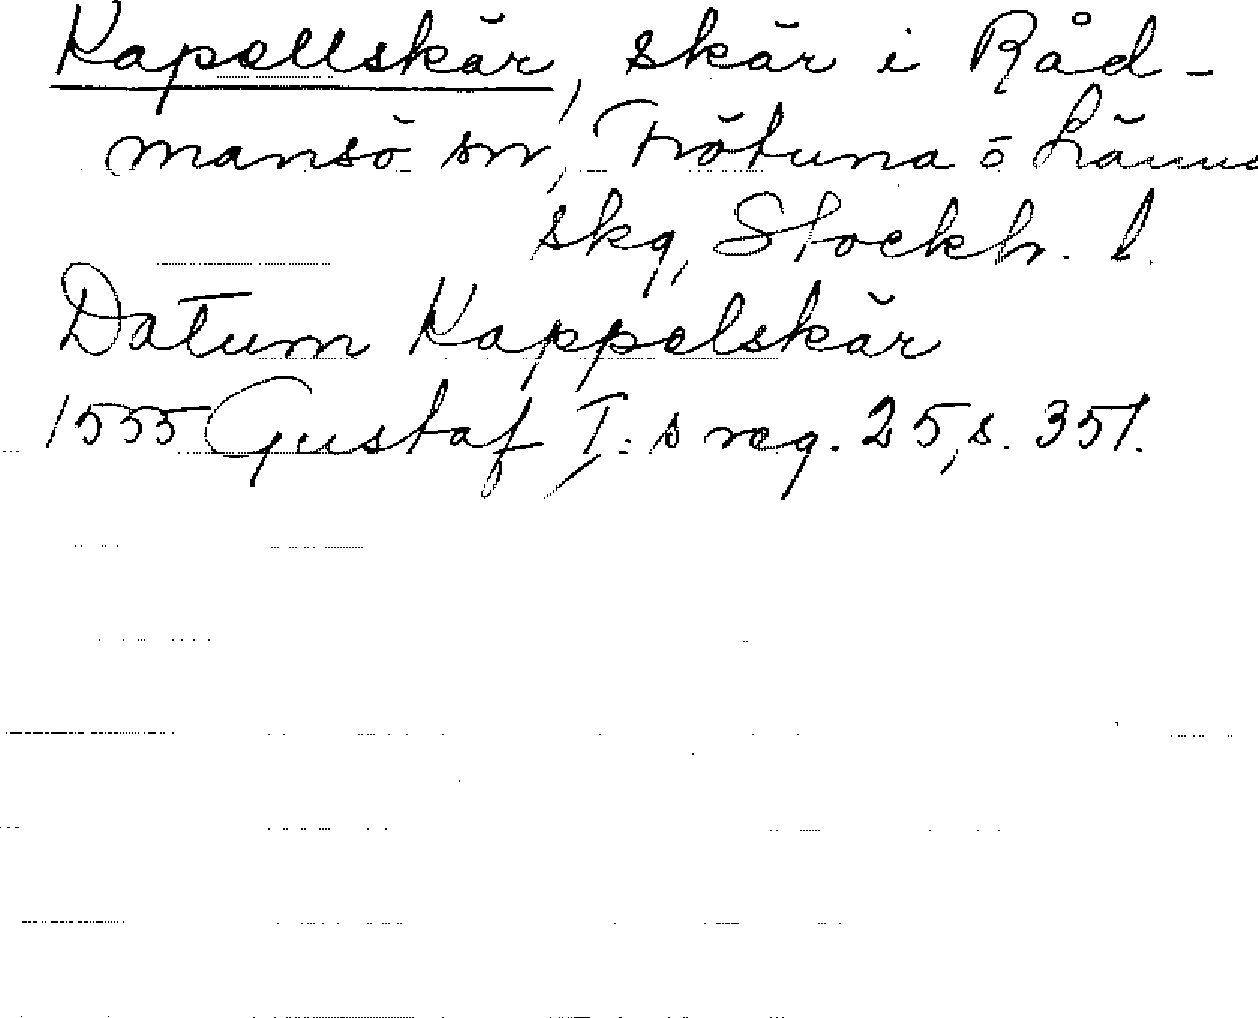 Kapellskär, skär i Råd-
mansö sn, Frötuna o Länna
skg, Stockh. l.
Datum Kappelskär
1555 Gustaf I:s reg. 25, s. 351.